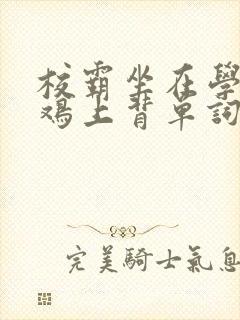 校霸坐在學
鸡上背单詞
完美騎士氣息